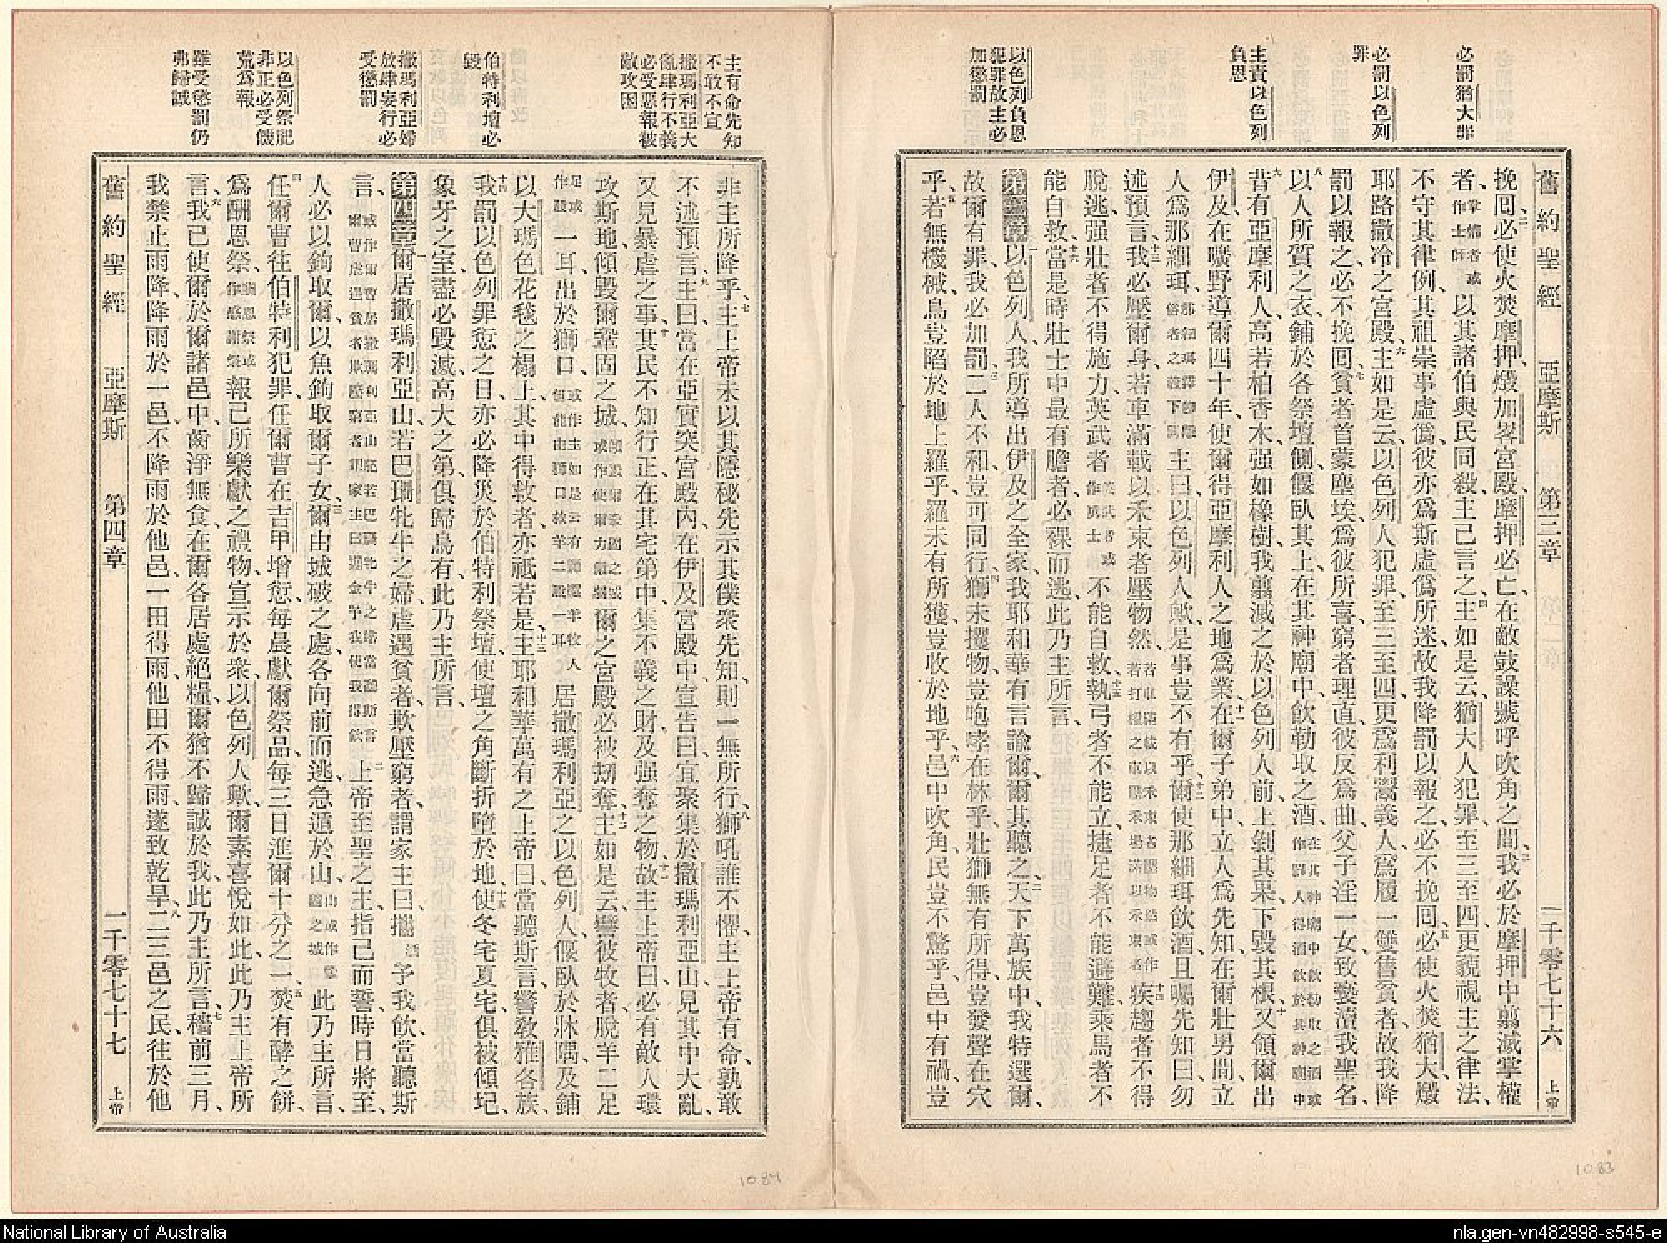 必罰猶大罪
必罰以色列
罪
主責以色列
負恩
以色列負恩
犯罪故主必
加懲罰
舊約聖經 亞摩斯 第三章 一千零七十六 上帝
挽回、必使火焚摩押、燬加畧宮殿、摩押必亡、在敵鼓譟號呼吹角之間、三我必於摩押中翦滅掌權
者、掌權者或作士師以其諸伯與民同殺、主已言之、四主如是云、猶大人犯罪、至三至四、更藐視主之律法、
不守其律例、其祖崇事虛僞、彼亦爲斯虛僞所迷、故我降罰以報之、必不挽回、五必使火焚猶大、燬
耶路撒冷之宮殿、六主如是云、以色列人犯罪、至三至四、更爲利鬻義人、爲履一雙售貧者、故我降
罰以報之、必不挽回、七貧者首蒙塵埃、爲彼所喜、窮者理直、彼反爲曲、父子淫一女、致褻瀆我聖名、
八以人所質之衣、鋪於各祭壇側、偃臥其上、在其神廟中、飲勒取之酒、在其神廟中飲勒取之酒或作罰人得酒飲於其神廟中
九昔有亞摩利人、高若柏香木、强如橡樹、我翦滅之於以色列人前、上剝其果、下毀其根、十又領爾出
伊及、在曠野導爾四十年、使爾得亞摩利人之地爲業、十一在爾子弟中立人爲先知、在爾壯男間立
人爲那細珥、主曰、以色列人歟、是事豈不有乎、十二爾使那細珥飲酒、且囑先知曰、勿
述預言、十三我必壓爾身、若車滿載以禾束者壓物然、十四疾趨者不得
脫逃、强壯者不得施力、英武者英武者或作勇士不能自救、十五執弓者不能立、捷足者不能避難、乘馬者不
能自救、十六當是時壯士中最有膽者、必裸而逃、此乃主所言、
第三章以色列人、我所導出伊及之全家、我耶和華有言諭爾、爾其聽之、二天下萬族中、我特選爾、
故爾有罪、我必加罰、三二人不和、豈可同行、四獅未攫物、豈咆哮在林乎、壯獅無有所得、豈發聲在穴
乎、五若無機檻、鳥豈陷於地上羅乎、羅未有所獲、豈收於地乎、六邑中吹角、民豈不驚乎、邑中有禍、豈
主有命先知
不敢不宣
撒瑪利亞大
亂肆行不義
必受惡報被
敵攻困
伯特利壇必
毀
撒瑪利亞婦
放肆妄行必
受懲罰
以色列祭祀
非正必受饑
荒爲報
雖受懲罰仍
弗歸誠
非主所降乎、七主上帝未以其隱秘先示其僕衆先知、則一無所行、八獅吼誰不懼、主上帝有命、孰敢
不述預言、九主曰、當在亞實突宮殿內、在伊及宮殿中宣告曰、宜聚集於撒瑪利亞山、見其中大亂、
又見暴虐之事、十其民不知行正、在其宅第中、集不義之財、及强奪之物、十一故主上帝曰、必有敵人環
攻斯地、傾毀爾鞏固之城、爾之宮殿必被刼奪、十二主如是云、譬彼牧者、脫羊二足
足或作腿一耳出於獅口、居撒瑪利亞之以色列人、偃臥於牀隅、及鋪
以大瑪色花毯之榻上、其中得救者、亦祗若是、十三主耶和華萬有之上帝曰、當聽斯言、警敎雅各族、
十四我罰以色列罪愆之日、亦必降災於伯特利祭壇、使壇之角斷折墮於地、十五使冬宅夏宅、俱被傾圮、
象牙之室、盡必毀滅、高大之第、俱歸烏有、此乃主所言、
第四章爾居撒瑪利亞山、若巴珊牝牛之婦、虐遇貧者、欺壓窮者、謂家主曰、攜酒予我飲、當聽斯
言、二上帝至聖之主、指己而誓、時日將至、
人必以鉤取爾、以魚鉤取爾子女、三爾由城破之處、各向前而逃、急遁於山、此乃主所言、
四任爾曹往伯特利犯罪、任爾曹在吉甲增愆、每晨獻爾祭品、每三日進爾十分之一、五焚有酵之餅、
爲酬恩祭、酬恩祭或作感謝祭報己所樂獻之禮物、宣示於衆、以色列人歟、爾素喜悅如此、此乃主上帝所
言、六我已使爾於爾諸邑中、齒淨無食、在爾各居處絕糧、爾猶不歸誠於我、此乃主所言、七穡前三月、
我禁止雨降、降雨於一邑、不降雨於他邑、一田得雨、他田不得雨、遂致乾旱、八二三邑之民、往於他
舊約聖經 亞摩斯 第四章 一千零七十七 上帝
1084
1083
National Library of Australia
nla.gen-vn482998-s545-e